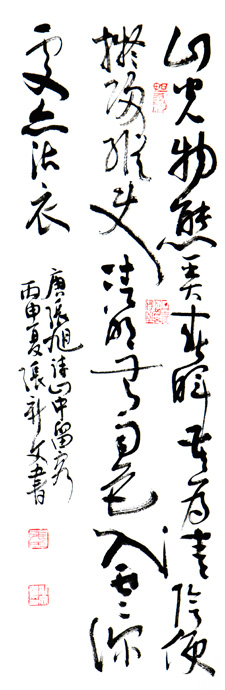 山光物態弄春暉莫為輕陰便
擬歸縱使晴明無雨色入雲深
處亦沾衣
唐張旭詩山中留客
丙申夏張新文書